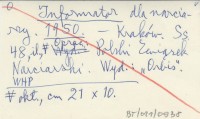 "Informator dla narcia-
rzy. 1950. — Kraków. Sz
48, il, Oprac. Polski Związek
Narciarski. Wyd.: "Orbis".
WHP
okł., cm 21 x 10.